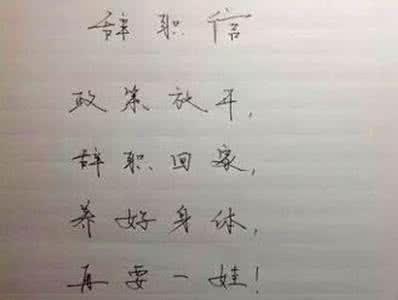 辞职信
政策放开,
辞职回家,
养好身体,
再要一娃!